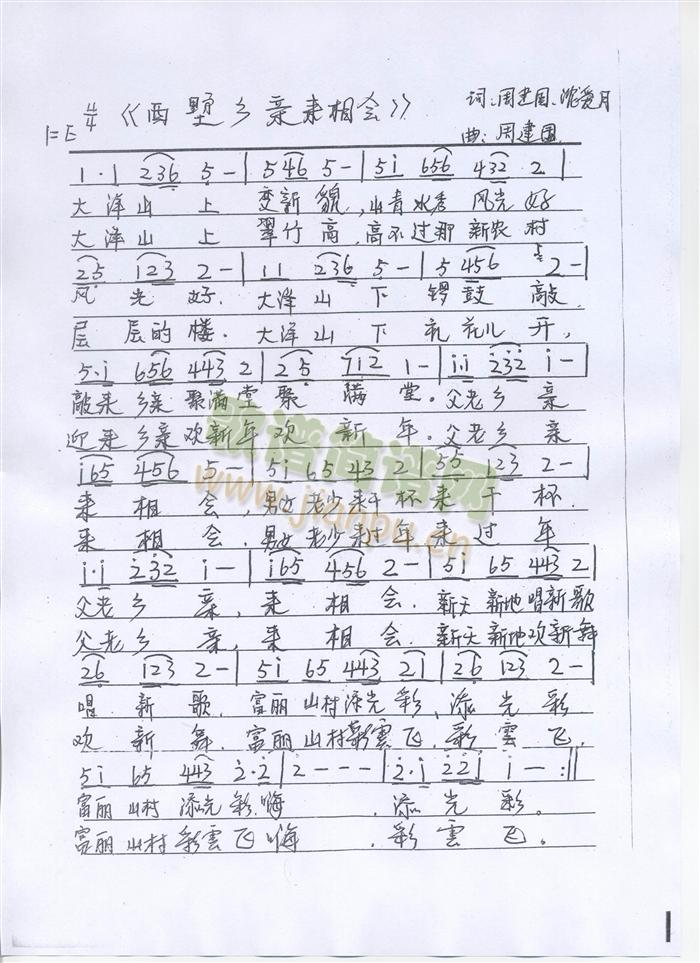 1=E 4/4 《西墅乡亲来相会》 词:周建国、沈爱月
曲:周建国
1·1 236 5 - | 546 5 - | 5i 656 432 2 |
大泽山 上 变新 貌,山青水秀 风光 好
大泽山 上 翠竹 高,高不过那 新农 村
25 123 2 - | 11 236 5 - | 5 456 2 - |
风 光 好. 大泽山 下 锣鼓 敲.
层 层的 楼. 大泽山 下 礼花儿 开,
5·i 656 443 2 | 25 712 1 - | ii 232 i - |
敲来 乡亲 聚满堂 聚 满 堂。父老乡 亲
迎来乡亲欢新年欢 新 年.父老乡 亲
i65 456 5 - | 5i 65 43 2 | 55 123 2 - |
来 相 会,男女老少来干杯来 干 杯.
来 相 会.男女老少来过年来 过 年
i·i 232 i - | i65 456 2 - | 5i 65 443 2
父老 乡 亲, 来 相 会. 新天 新地唱新歌
父老 乡 亲, 来 相 会. 新天新地欢新舞
26 123 2 - | 5i 65 443 21 | 26 123 2 - |
唱 新 歌.富丽山村添光 彩,添 光 彩
欢 新 舞.富丽山村彩雲飞.彩 雲 飞.
5i 65 443 2·2 | 2 - - - | 2·i 22i i - :||
富丽 山村 添光 彩.嗨 . 添 光 彩。
富丽 山村彩雲飞 嗨 . 彩 雲 飞。
歌谱简谱网
www.jianpu.cn